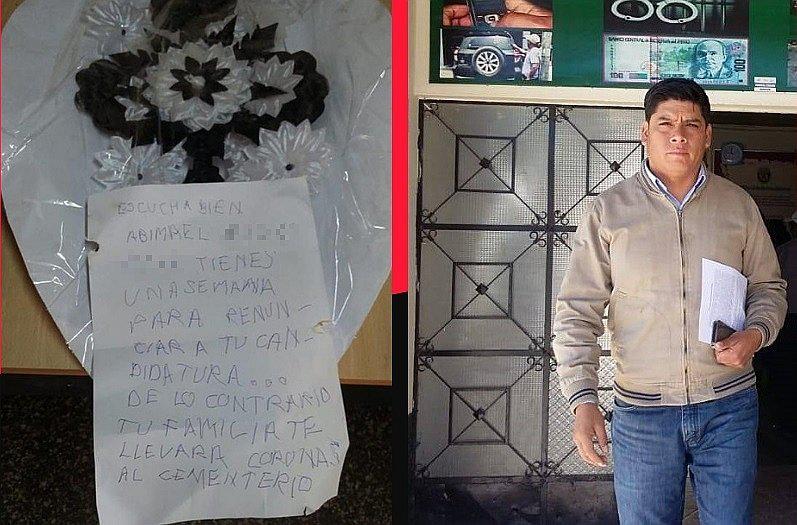 ESCUCHA BIEN
ABIMAEL
TIENES
UNA SEMANA
PARA RENUN-
CIAR A TU CAN-
DIDATURA...
DE LO CONTRARIO
TU FAMILIA TE
LLEVARA CORONAS
AL CEMENTERIO
BANCO CENTRAL DE RESERVA DEL PERU
100